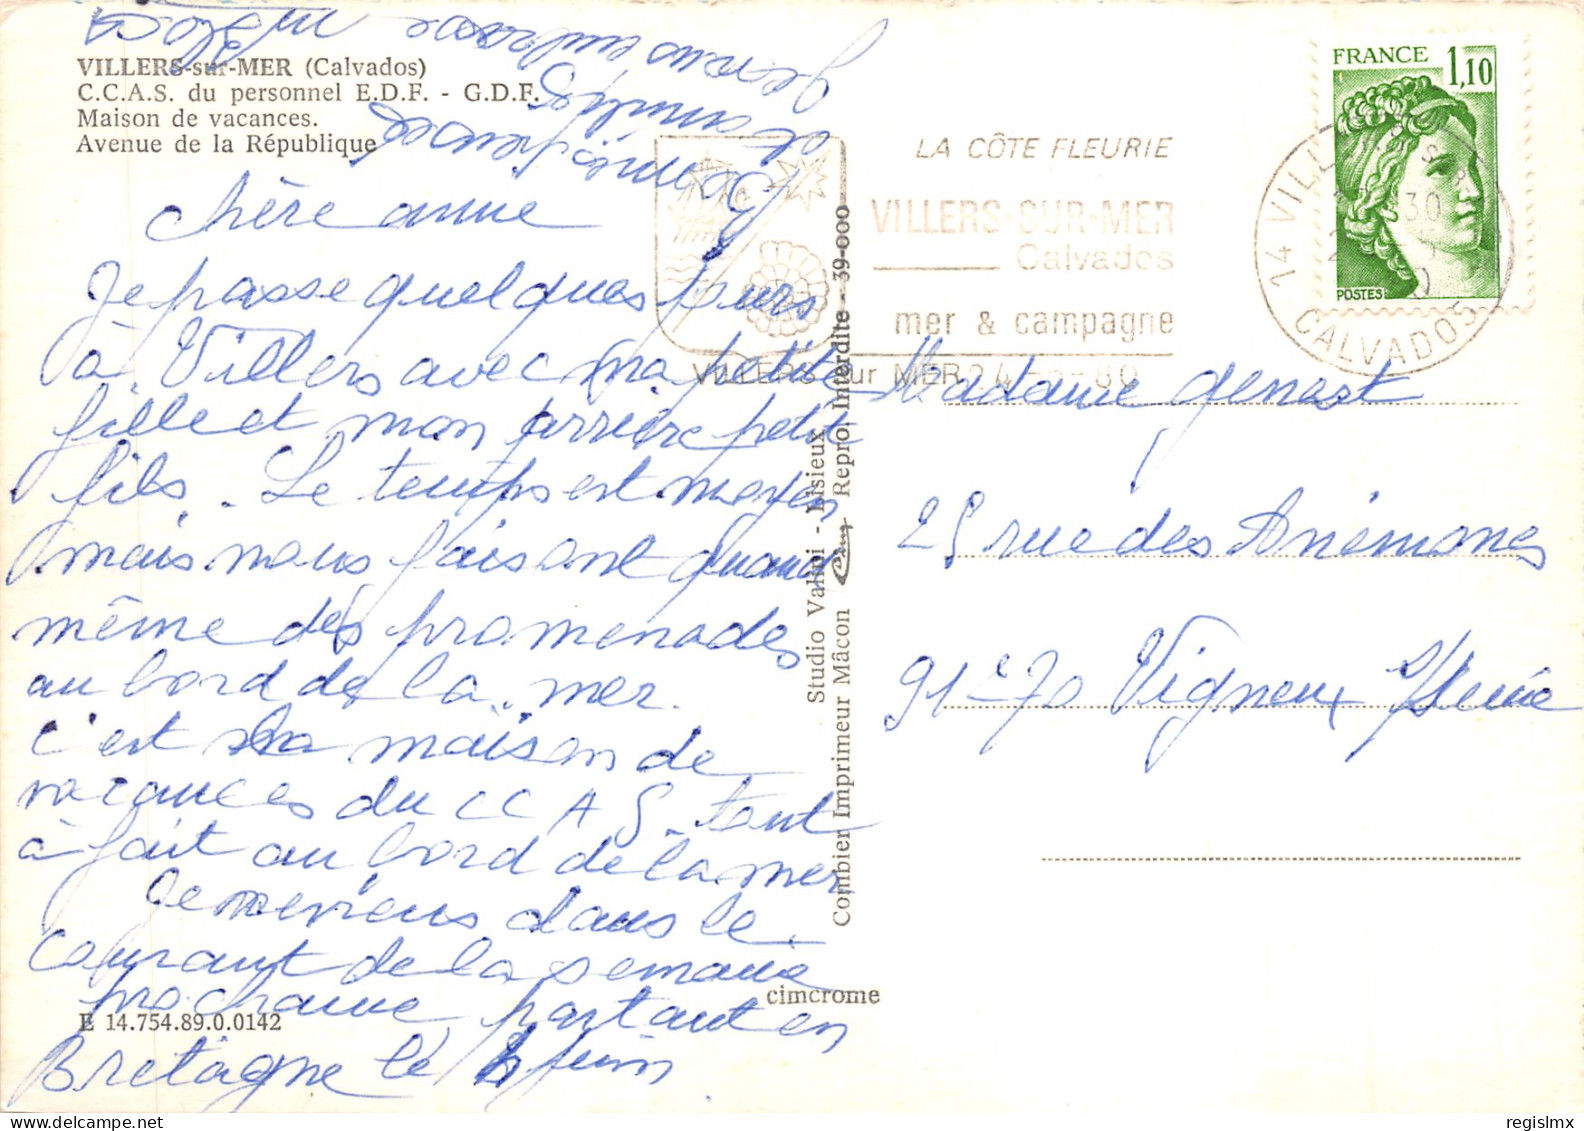 VILLERS-sur-MER (Calvados)
C.C.A.S. du personnel E.D.F. - G.D.F.
Maison de vacances.
Avenue de la République
chère anne
Je passe quelques jours
à Villers avec ma petite
fille et mon arrière petit
fils. Le temps est moyen
mais nous faisant quand
même des promenades
au bord de la mer.
C'est la maison de
vacances du CCAS. tout
à fait au bord de la mer
Je reviens dans le
courant de la semaine
prochaine partant en
Bretagne le juin
et famille
Je vous embrasse
E 14.754.89.0.0142
cimcrome
Studio Valioi - Lisieux
Combier Imprimeur Mâcon Cim Repro. Interdite - 39-000
LA CÔTE FLEURIE
VILLERS-SUR-MER
Calvados
mer & campagne
VILLERS sur MER 24 -80
FRANCE 1,10
POSTES
14 VILL
CALVADOS
Madame Genest
25 rue des Anémones
91270 Vigneux s/Seine
regislmx